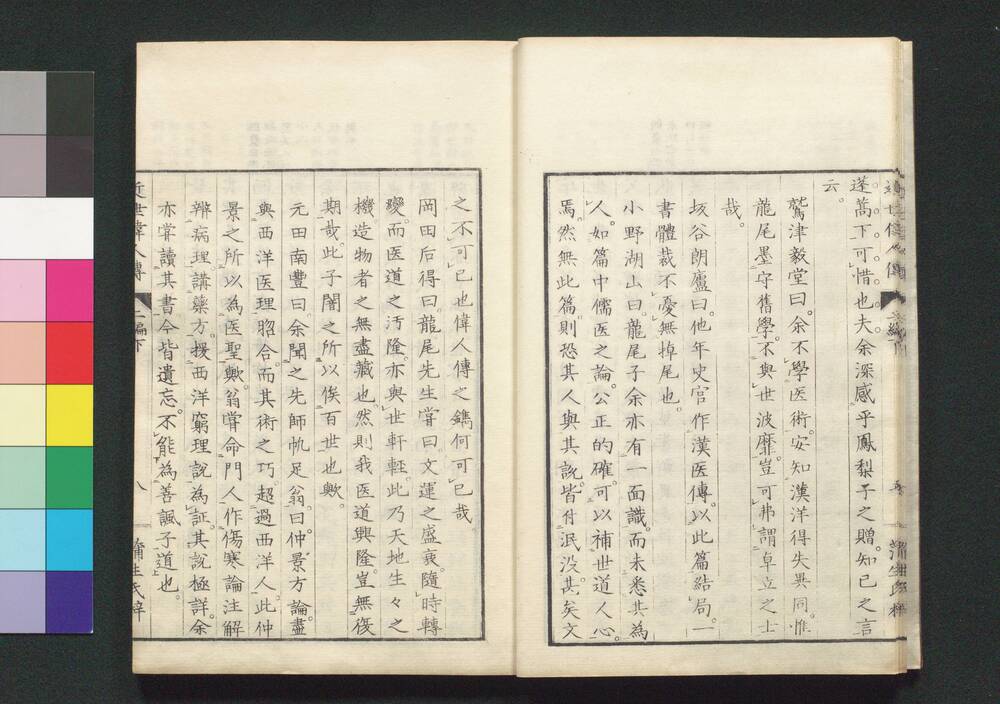 蓬蒿下可惜也夫余深感乎鳳梨子之贈知己之言
云。
鷲津毅堂曰。余不學医術。安知漢洋得失異同。惟
龍尾墨守舊學。不與世波靡。豈可弗謂卓立之士
哉。
坂谷朗廬曰。他年史官作漢医傳。以此篇結局。一
書體裁不憂無掉尾也。
小野湖山曰。龍尾子余亦有一面識。而未悉其為
人。如篇中儒医之論。公正的確。可以補世道人心。
焉。然無此篇。則恐其人與其說。皆付泯没。其矣文
之不可已也偉人傳之鐫何可已哉
岡田后得曰。龍尾先生嘗曰。文運之盛衰。隨時轉
變。而医道之汚隆。亦與世軒輊。此乃天地生々之
機。造物者之無盡藏也。然則我医道興隆。豈無復
期哉。此子闇之所以俟百世也歟。
元田南豊曰。余聞之先師帆足翁。曰。仲景方論。盡
與西洋医理脗合。而其術之巧。超過西洋人。此仲
景之所以為医聖歟。翁嘗命門人作傷寒論注解
辨病理。講藥方。援西洋窮理說為証。其說極詳。余
亦嘗讀其書今皆遺忘。不能為善諷子道也。
近世偉人傳
二編下
八
蒲生氏梓